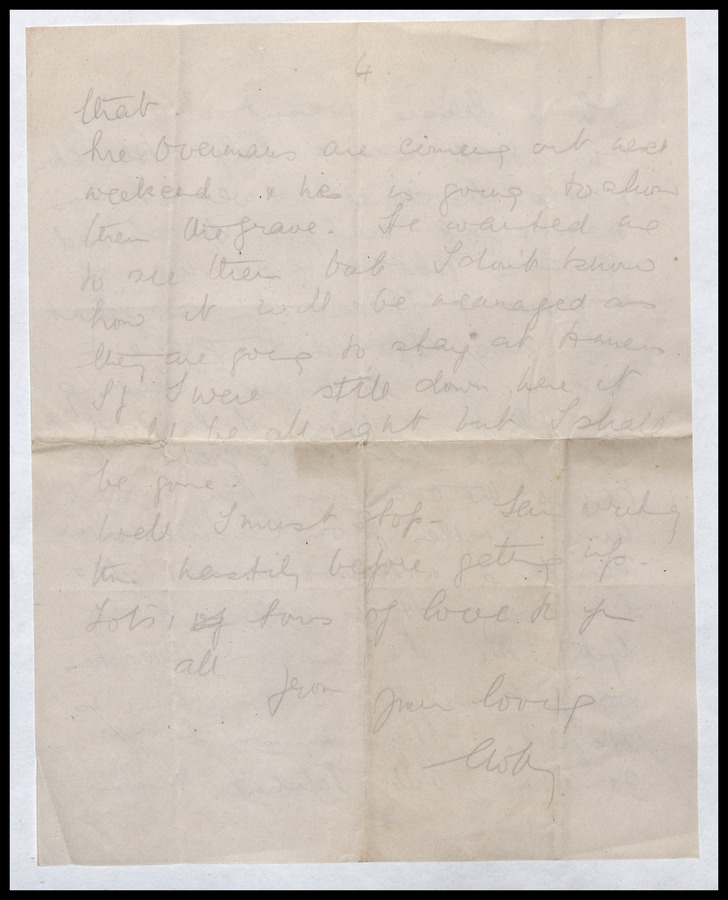 4
that.
The Overmans are coming out next
weekend & he is going to show
them the grave. He wanted me
to see them but I don't know
how it will be managed as
they are going to stay at
If I were still down here it
would be all right but I shall
be gone.
Well I must stop. I am writing
this hastily before getting up.
Lots, of tons of love to you
all
from your loving